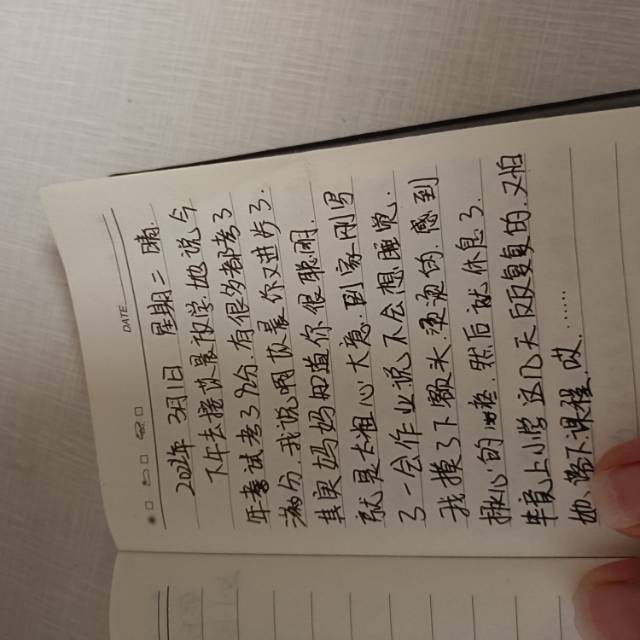 DATE
2022年 3月1日 星期二 晴.
下午去接晨放学.她说今
年考试考了9分.有很多都考了
满分.我说啊晨你又进步了.
其实妈妈知道你很聪明.
就是太粗心大意.到家刚写
了一会作业说不会想睡觉.
我摸了下额头.烫烫的.感到
揪心的疼.然后就休息了.
毕竟上小学这几天反反复复的.又怕
她落下课程.哎.……